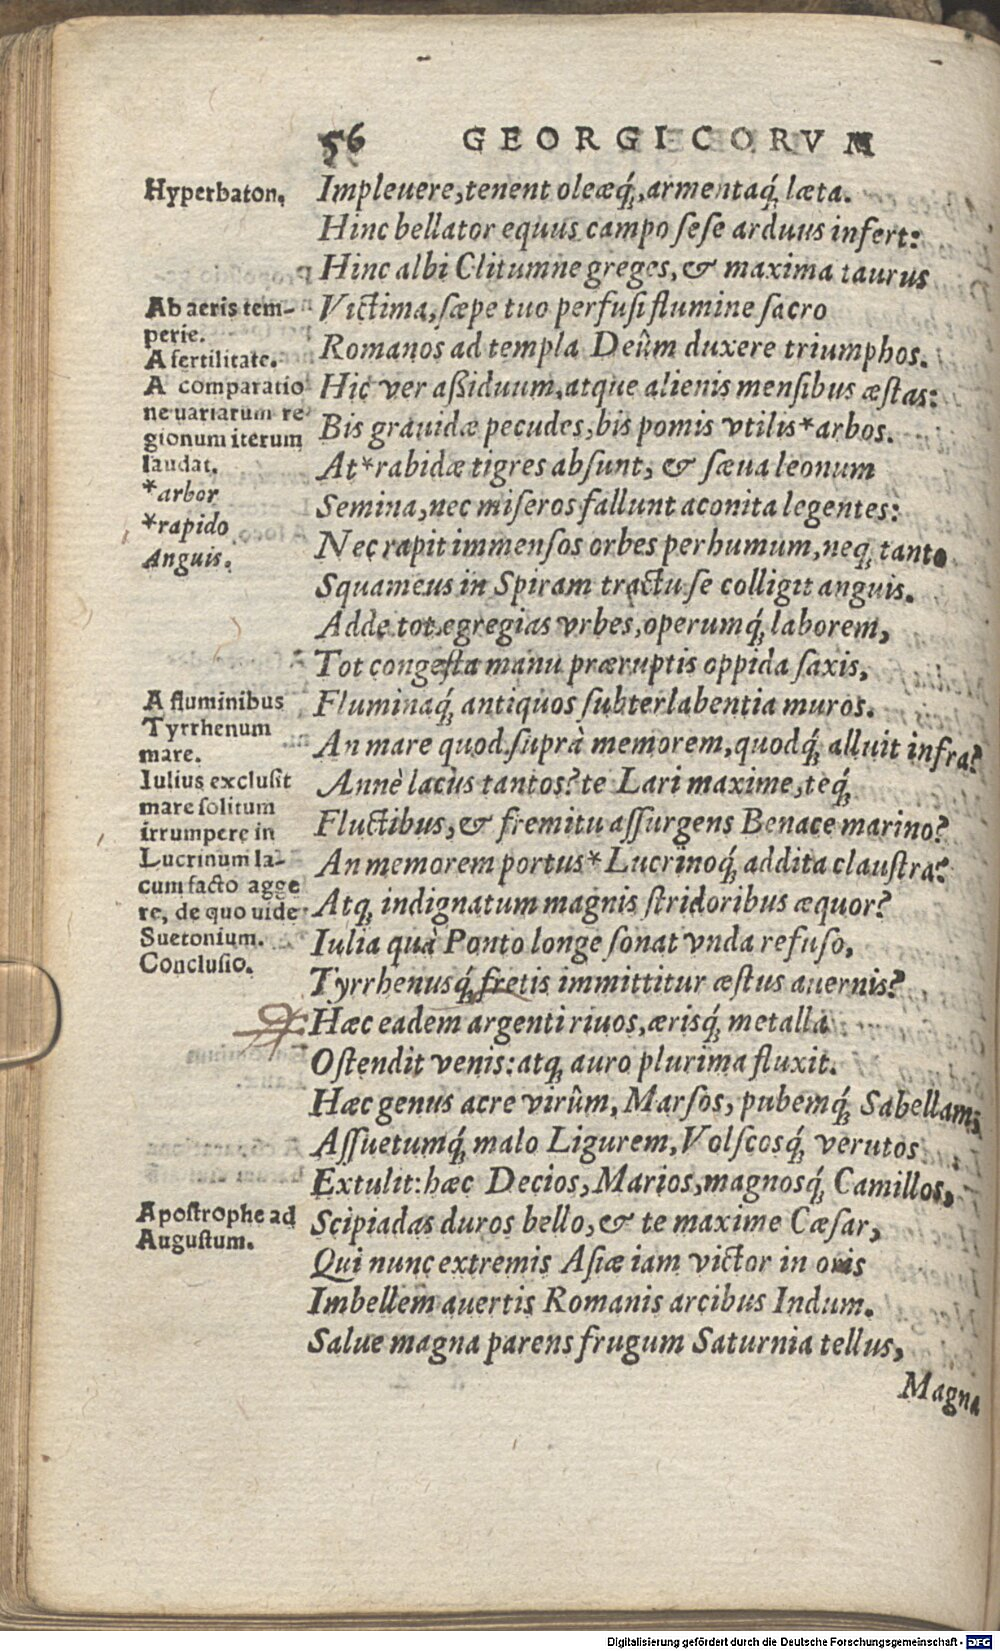 56 GEORGICORVM
Hyperbaton.
Impleuere, tenent oleæq́;, armentaq́; læta.
Hinc bellator equus campo ſeſe arduus infert:
Hinc albi Clitumne greges, & maxima taurus
Victima, ſæpe tuo perfuſi flumine ſacro
Romanos ad templa Deûm duxere triumphos.
Hic ver aßiduum, atque alienis menſibus æſtas:
Bis grauidæ pecudes, bis pomis vtilis *arbos.
At *rabidæ tigres abſunt, & ſæua leonum
Semina, nec miſeros fallunt aconita legentes:
Nec rapit immenſos orbes per humum, neq; tanto
Squameus in Spiram tractu ſe colligit anguis.
Adde tot egregias vrbes, operumq́; laborem,
Tot congeſta manu præruptis oppida ſaxis,
Fluminaq́; antiquos ſubterlabentia muros.
An mare quod ſuprà memorem, quodq́; alluit infra?
Annè lacùs tantos? te Lari maxime, teq́;
Fluctibus, & fremitu aſſurgens Benace marino?
An memorem portus* Lucrinoq́; addita clauſtra?
Atq; indignatum magnis ſtridoribus æquor?
Iulia quà Ponto longe ſonat vnda refuſo,
Tyrrhenusq́; fretis immittitur æſtus auernis?
Hæc eadem argenti riuos, ærisq́; metalla
Oſtendit venis: atq; auro plurima fluxit.
Hæc genus acre virûm, Marſos, pubemq́; Sabellam,
Aſſuetumq́; malo Ligurem, Volſcosq́; verutos
Extulit: hæc Decios, Marios, magnosq́; Camillos,
Scipiadas duros bello, & te maxime Cæſar,
Qui nunc extremis Aſiæ iam victor in oris
Imbellem auertis Romanis arcibus Indum.
Salue magna parens frugum Saturnia tellus,
Magna
Ab aeris tem-
perie.
A fertilitate.
A comparatio
ne uariarum re
gionum iterum
laudat.
*arbor
*rapido
Anguis.
A fluminibus
Tyrrhenum
mare.
Iulius excluſit
mare ſolitum
irrumpere in
Lucrinum la-
cum facto agge
re, de quo uide
Suetonium.
Concluſio.
Apoſtrophe ad
Auguſtum.
Digitalisierung gefördert durch die Deutsche Forschungsgemeinschaft - DFG